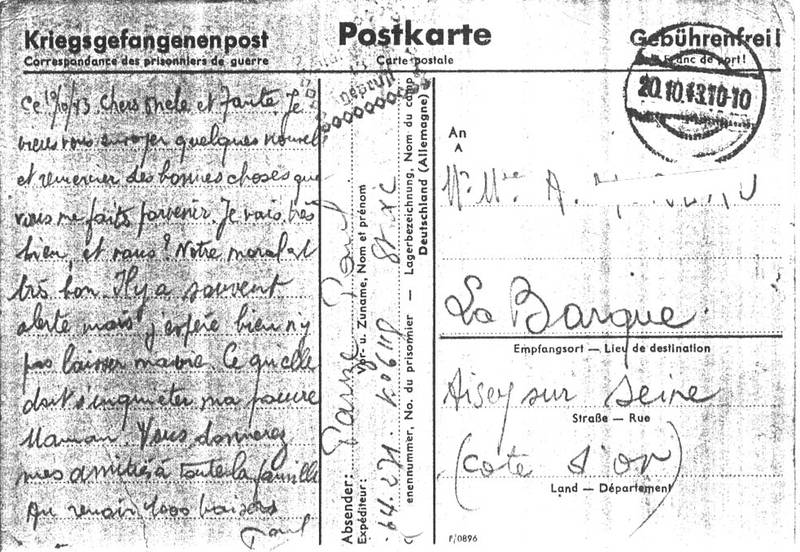 Kriegsgefangenenpost
Correspondance des prisonniers de guerre
Postkarte
Carte postale
Gebührenfrei!
Franc de port!
geprüft
20.10.43.10-10
Ce 19/10/43. Chers Oncle et Tante. Je
viens vous envoyer quelques nouvel
et remercier des bonnes choses que
vous me faits parvenir. Je vais très
bien, et vous? Notre moral est
très bon. Il y a souvent
alerte mais j'espère bien n'y
pas laisser ma vie. Ce qu'elle
doit s'inquiéter ma pauvre
Maman. Vous donnerez
mes amitiés à toute la famille
Au revoir 1000 baisers
Paul
Absender:
Expéditeur:
Paul
Vor- u. Zuname, Nom et prénom
enennummer, No. du prisonnier — Lagerbezeichnung, Nom du camp
Deutschland (Allemagne)
An
A
Mr Mme A.
La Barque
Empfangsort — Lieu de destination
Aisey sur Seine
Straße — Rue
(Cote d'or)
Land — Département
F/0896